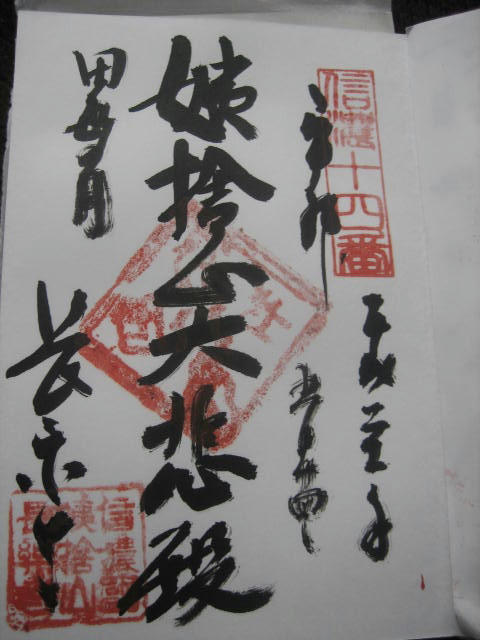 信濃十四番
奉拝
平成 年
姨捨山大悲殿
田毎月
長楽寺
信濃國
姨捨山
長樂寺